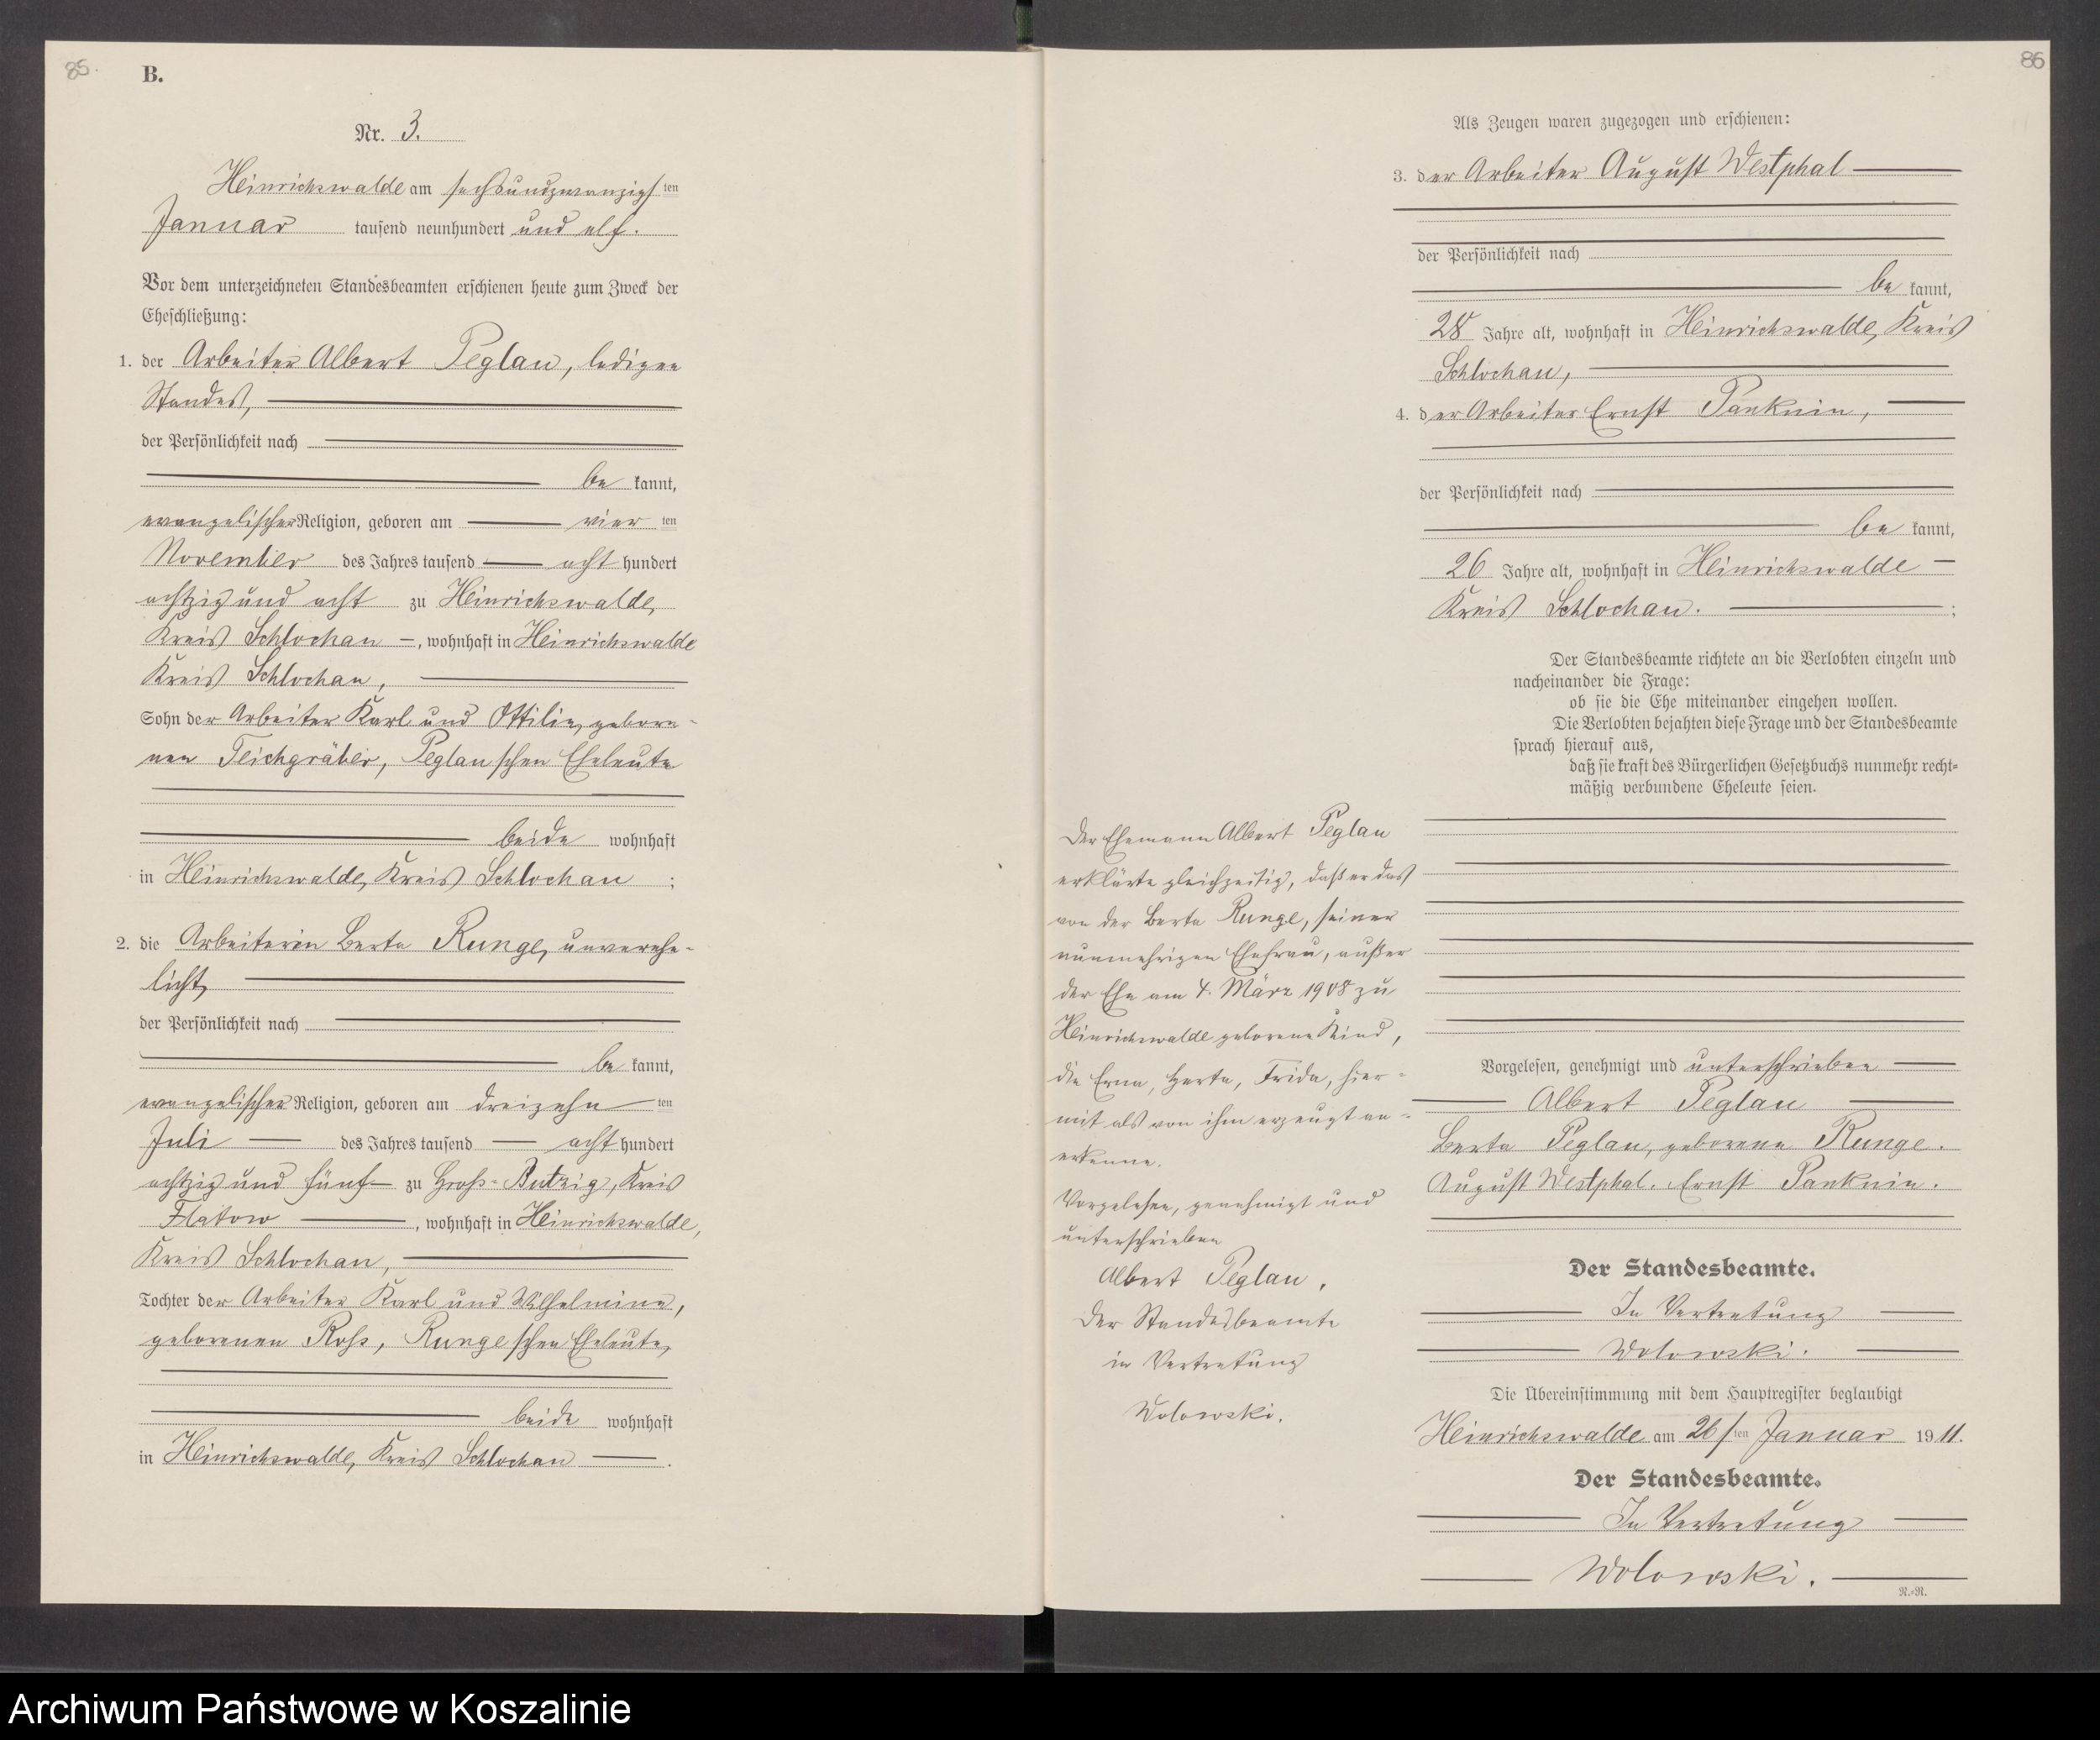 85.
B.
Nr. 3.
Heinrichswalde am sechsundzwanzigsten
Januar tausend neunhundert und elf.
Vor dem unterzeichneten Standesbeamten erschienen heute zum Zweck der
Eheschließung:
1. der Arbeiter Albert Peglau, ledigen
Standes,
der Persönlichkeit nach
be kannt,
evangelischer Religion, geboren am vier ten
November des Jahres tausend acht hundert
achtzig und acht zu Heinrichswalde,
Kreis Schlochau –, wohnhaft in Heinrichswalde
Kreis Schlochau,
Sohn der Arbeiter Karl und Ottilie, gebore-
nen Teichgräber, Peglau'schen Eheleute
beide wohnhaft
in Heinrichswalde, Kreis Schlochau ;
2. die Arbeiterin Berta Runge, unverehe-
licht,
der Persönlichkeit nach
be kannt,
evangelischer Religion, geboren am dreizehn ten
Juli des Jahres tausend acht hundert
achtzig und fünf zu Groß-Butzig, Kreis
Flatow , wohnhaft in Heinrichswalde,
Kreis Schlochau,
Tochter der Arbeiter Karl und Wilhelmine,
geborenen Roß, Runge'schen Eheleute,
beide wohnhaft
in Heinrichswalde, Kreis Schlochau .
86
Als Zeugen waren zugezogen und erschienen:
3. der Arbeiter August Westphal
der Persönlichkeit nach
be kannt,
28 Jahre alt, wohnhaft in Heinrichswalde, Kreis
Schlochau,
4. der Arbeiter Ernst Panknin,
der Persönlichkeit nach
be kannt,
26 Jahre alt, wohnhaft in Heinrichswalde –
Kreis Schlochau. ;
Der Standesbeamte richtete an die Verlobten einzeln und
nacheinander die Frage:
ob sie die Ehe miteinander eingehen wollen.
Die Verlobten bejahten diese Frage und der Standesbeamte
sprach hierauf aus,
daß sie kraft des Bürgerlichen Gesetzbuchs nunmehr recht-
mäßig verbundene Eheleute seien.
Der Ehemann Albert Peglau
erklärte gleichzeitig, daß er das
von der Berta Runge, seiner
nunmehrigen Ehefrau, außer
der Ehe am 4. März 1908 zu
Heinrichswalde geborene Kind,
die Erna, Herta, Frida, hier-
mit als von ihm erzeugt an-
erkenne.
Vorgelesen, genehmigt und
unterschrieben
Albert Peglau,
Der Standesbeamte
in Vertretung
Wolowski.
Vorgelesen, genehmigt und unterschrieben
Albert Peglau
Berta Peglau, geborene Runge.
August Westphal. Ernst Panknin.
Der Standesbeamte.
In Vertretung
Wolowski.
Die Übereinstimmung mit dem Hauptregister beglaubigt
Heinrichswalde am 26ten Januar 1911.
Der Standesbeamte.
In Vertretung
Wolowski.
R.=R.
Archiwum Państwowe w Koszalinie